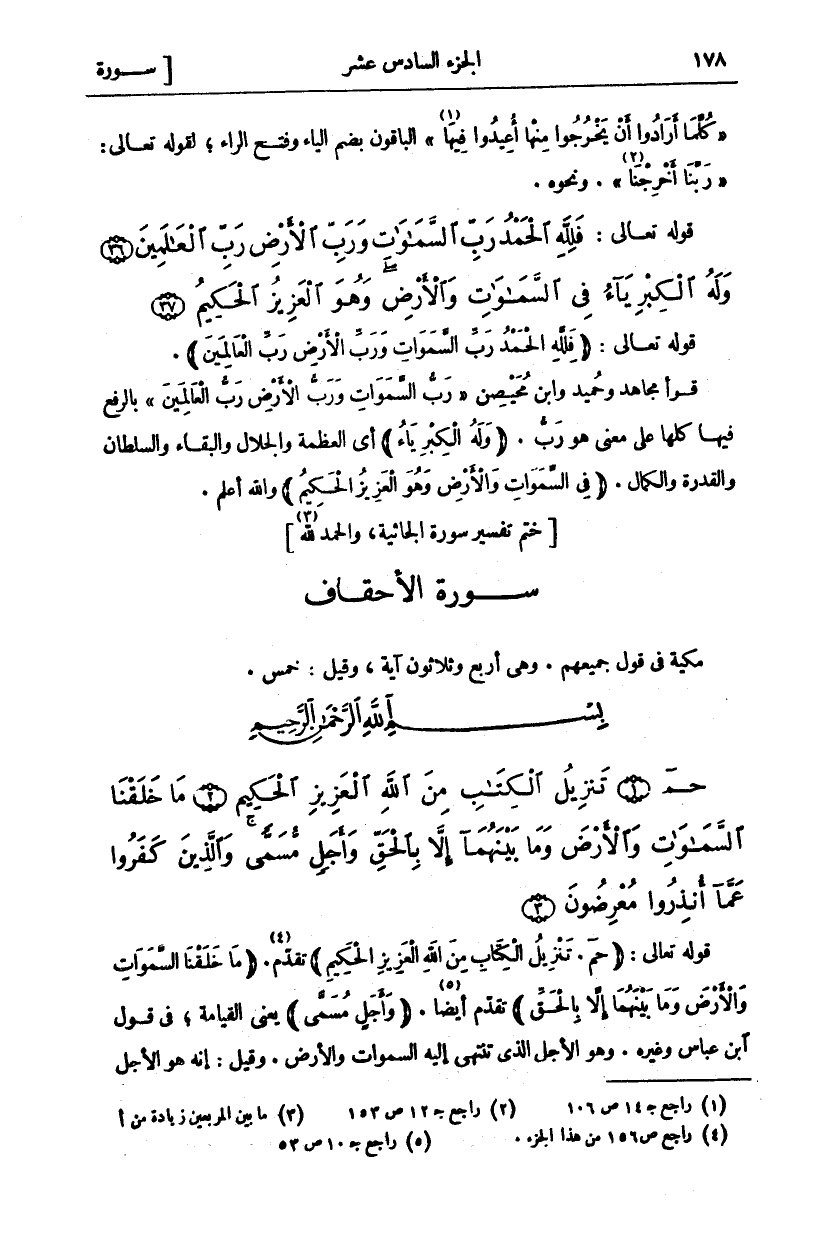 ١٧٨ الجزء السادس عشر [ ســورة
« كُلَّمَا أَرَادُوا أَنْ يَخْرُجُوا مِنْهَا أُعِيدُوا فِيهَا (١) » الباقون بضم الياء وفتــح الراء ؛ لقوله تعــالى :
« رَبَّنَا أَخْرِجْنَا (٢) » . ونحوه .
قوله تعــالى : فَلِلَّهِ ٱلْحَمْدُ رَبِّ ٱلسَّمَـٰوَٰتِ وَرَبِّ ٱلْأَرْضِ رَبِّ ٱلْعَـٰلَمِينَ ٣٦
وَلَهُ ٱلْكِبْرِيَآءُ فِى ٱلسَّمَـٰوَٰتِ وَٱلْأَرْضِ ۖ وَهُوَ ٱلْعَزِيزُ ٱلْحَكِيمُ ٣٧
قوله تعــالى : ﴿ فَلِلَّهِ الْحَمْدُ رَبِّ السَّمَوَاتِ وَرَبِّ الْأَرْضِ رَبِّ الْعَالَمِينَ ﴾ .
قــرأ مجاهد وحُميد وابن مُحَيْصِن « رَبُّ السَّمَوَاتِ وَرَبُّ الْأَرْضِ رَبُّ الْعَالَمِينَ » بالرفع
فيهــا كلها على معنى هو رَبُّ . ﴿ وَلَهُ الْكِبْرِيَاءُ ﴾ أى العظمة والجلال والبقــاء والسلطان
والقدرة والكمال . ﴿ فِى السَّمَوَاتِ وَالْأَرْضِ وَهُوَ الْعَزِيزُ الْحَكِيمُ ﴾ والله أعلم .
[ ختم تفسير سورة الجاثية، والحمد لله (٣) ]
ســورة الأحقــاف
مكية فى قول جميعهم . وهى أربع وثلاثون آية ، وقيل : خمس .
بِسْــمِ ٱللَّهِ ٱلرَّحْمَـٰنِ ٱلرَّحِيـمِ
حـمٓ ١ تَنزِيلُ ٱلْكِتَـٰبِ مِنَ ٱللَّهِ ٱلْعَزِيزِ ٱلْحَكِيمِ ٢ مَا خَلَقْنَا
ٱلسَّمَـٰوَٰتِ وَٱلْأَرْضَ وَمَا بَيْنَهُمَآ إِلَّا بِٱلْحَقِّ وَأَجَلٍ مُّسَمًّى ۚ وَٱلَّذِينَ كَفَرُوا
عَمَّآ أُنذِرُوا مُعْرِضُونَ ٣
قوله تعالى : ﴿ حمٓ . تَنْزِيلُ الْكِتَابِ مِنَ اللهِ الْعَزِيزِ الْحَكِيمِ ﴾ تقدّم (٤) . ﴿ مَا خَلَقْنَا السَّمَوَاتِ
وَالْأَرْضَ وَمَا بَيْنَهُمَا إِلَّا بِالْحَقِّ ﴾ تقدّم أيضا (٥) . ﴿ وَأَجَلٍ مُسَمًّى ﴾ يعنى القيامة ؛ فى قــول
آبن عباس وغيره . وهو الأجل الذى تنتهى إليه السموات والأرض . وقيل : إنه هو الأجل
(١) راجع جـ ١٤ ص ١٠٦ (٢) راجع جـ ١٢ ص ١٥٣ (٣) ما بين المربعين زيادة من أ
(٤) راجع ص ١٥٦ من هذا الجزء . (٥) راجع جـ ١٠ ص ٥٣